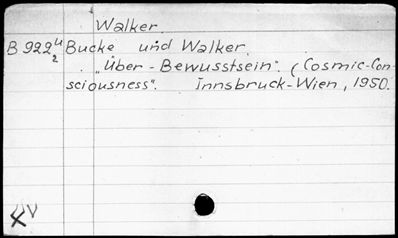 Walker.
B 922 4/2 Bucke und Walker.
„Über-Bewusstsein". (Cosmic-Con-
sciousness". Innsbruck-Wien, 1950.